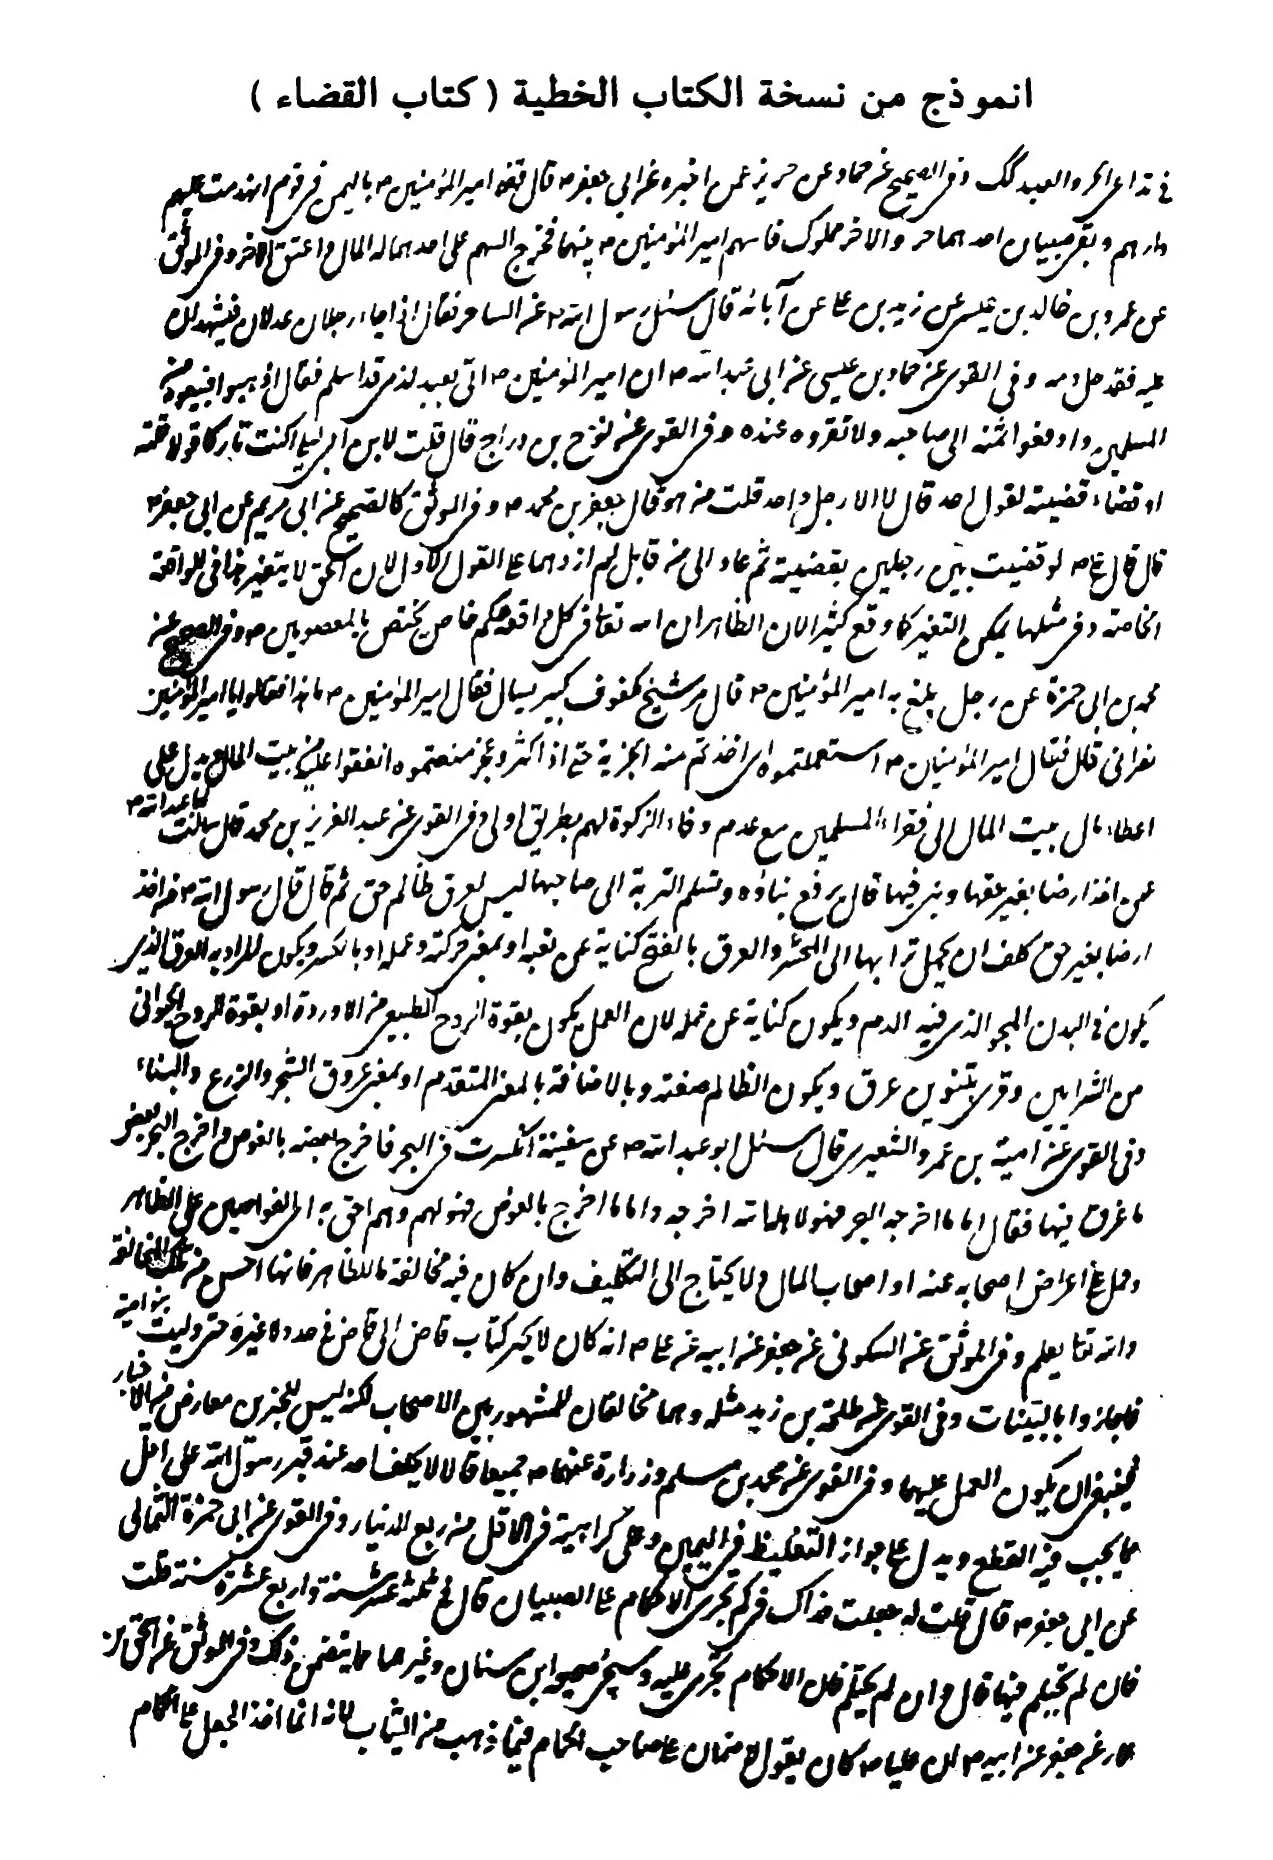 انموذج من نسخة الكتاب الخطية ( كتاب القضاء )
في تداعي الحر والعبد كك وفي الصحيح عن حماد عن حريز عمن اخبره عن ابي جعفر ع قال قضى امير المؤمنين ع باليمن في قوم انهدمت عليهم
دارهم وبقي صبيان احدهما حر والاخر مملوك فاسهم امير المؤمنين ع بينهما فخرج السهم على احدهما له المال واعتق الاخر وفي الموثق
عن عمرو بن خالد بن عيسى عن زيد بن علي عن آبائه قال سئل رسول الله ص عن الساحر فقال اذا جاء رجلان عدلان فيشهدان
عليه فقد حل دمه وفي القوي عن حماد بن عيسى عن ابي عبد الله ع ان امير المؤمنين ع اتي بعبد لذمي قد اسلم فقال اذهبوا فبيعوه من
المسلمين وادفعوا ثمنه الى صاحبه ولا تقروه عنده وفي القوي عن نوح بن دراج قال قلت لابن ابي ليلى اكنت تاركا قولا قلته
او قضاء قضيته لقول احد قال لا الا رجل واحد قلت من هو قال جعفر بن محمد ع وفي الموثق كالصحيح عن ابي مريم عن ابي جعفر ع
قال قال علي ع لو قضيت بين رجلين بقضية ثم عادا الي من قابل لم ازدهما على القول الاول لان الحق لا يتغير هذا في الواقعة
الخاصة وفي مثلها يمكن التغير كما وقع كثيرا لان الظاهر ان لله تعالى في كل واقعة حكم خاص يختص بالمعصومين ع وفي الصحيح عن
محمد بن ابي حمزة عن رجل بلغ به امير المؤمنين ع قال مر شيخ مكفوف كبير يسأل فقال امير المؤمنين ع ما هذا فقالوا يا امير المؤمنين
نصراني قال فقال امير المؤمنين ع استعملتموه اي اخذتم منه الجزية حتى اذا كبر وعجز منعتموه انفقوا عليه من بيت المال ويدل على
اعطاء مال بيت المال الى فقراء المسلمين مع عدم وفاء الزكوة لهم بطريق اولى وفي القوي عن عبد العزيز بن محمد قال سالت ابا عبد الله ع
عمن اخذ ارضا بغير حقها وبنى فيها قال يرفع بناؤه وتسلم التربة الى صاحبها ليس لعرق ظالم حق ثم قال قال رسول الله ص من اخذ
ارضا بغير حق كلف ان يحمل ترابها الى المحشر والعرق بالفتح كناية عن تعبه او بمعنى حركته وعمله او بالكسر ويكون المراد به العرق الذي
يكون في البدن المجوف الذي فيه الدم ويكون كناية عن عمله لان العمل يكون بقوة الروح الطبيعي من الاوردة او بقوة الروح الحيواني
من الشرايين وقرئ بتنوين عرق ويكون الظالم صفته وبالاضافة بالمعنى المتقدم او بمعنى عروق الشجر والزرع والبناء
وفي القوي عن امية بن عمرو الشعيري قال سئل ابو عبد الله ع عن سفينة انكسرت في البحر فاخرج بعضه بالغوص واخرج البحر بعض
ما غرق فيها فقال اما ما اخرجه البحر فهو لاهله الله اخرجه واما ما اخرج بالغوص فهو لهم وهم احق به اي الغواصين على الظاهر
وحمل على اعراض اصحابه عنه او اصحاب المال ولا يحتاج الى التكليف وان كان فيه مخالفة ما للظاهر فانها احسن من تلك المخالفة
والله تعالى يعلم وفي الموثق عن السكوني عن جعفر عن ابيه عن علي ع انه كان لا يجيز كتاب قاض الى قاض في حد ولا غيره حتى وليت بنو امية
فاجازوا بالبينات وفي القوي عن طلحة بن زيد مثله وهما مخالفان للمشهور بين الاصحاب لكنه ليس للخبرين معارض من الاخبار
فينبغي ان يكون العمل عليهما وفي القوي عن محمد بن مسلم وزرارة عنهما ع جميعا قالا لا يحلف احد عند قبر رسول الله على اقل
مما يجب فيه القطع ويدل على جواز التغليظ في اليمين وعلى كراهية في الاقل من ربع الدينار وفي القوي عن ابي حمزة الثمالي
عن ابي جعفر ع قال قلت له جعلت فداك في كم تجري الاحكام على الصبيان قال في ثلثة عشر سنة واربع عشرة سنة قلت
فان لم يحتلم فيها قال وان لم يحتلم فان الاحكام تجري عليه وسيجيء صحيحة ابن سنان وغيرهما مما يتضمن ذلك وفي الموثق عن اسحق بن
عمار عن جعفر عن ابيه ع ان عليا ع كان يقول لا ضمان على صاحب الحمام فيما ذهب من الثياب لانه انما اخذ الجعل على الحمام